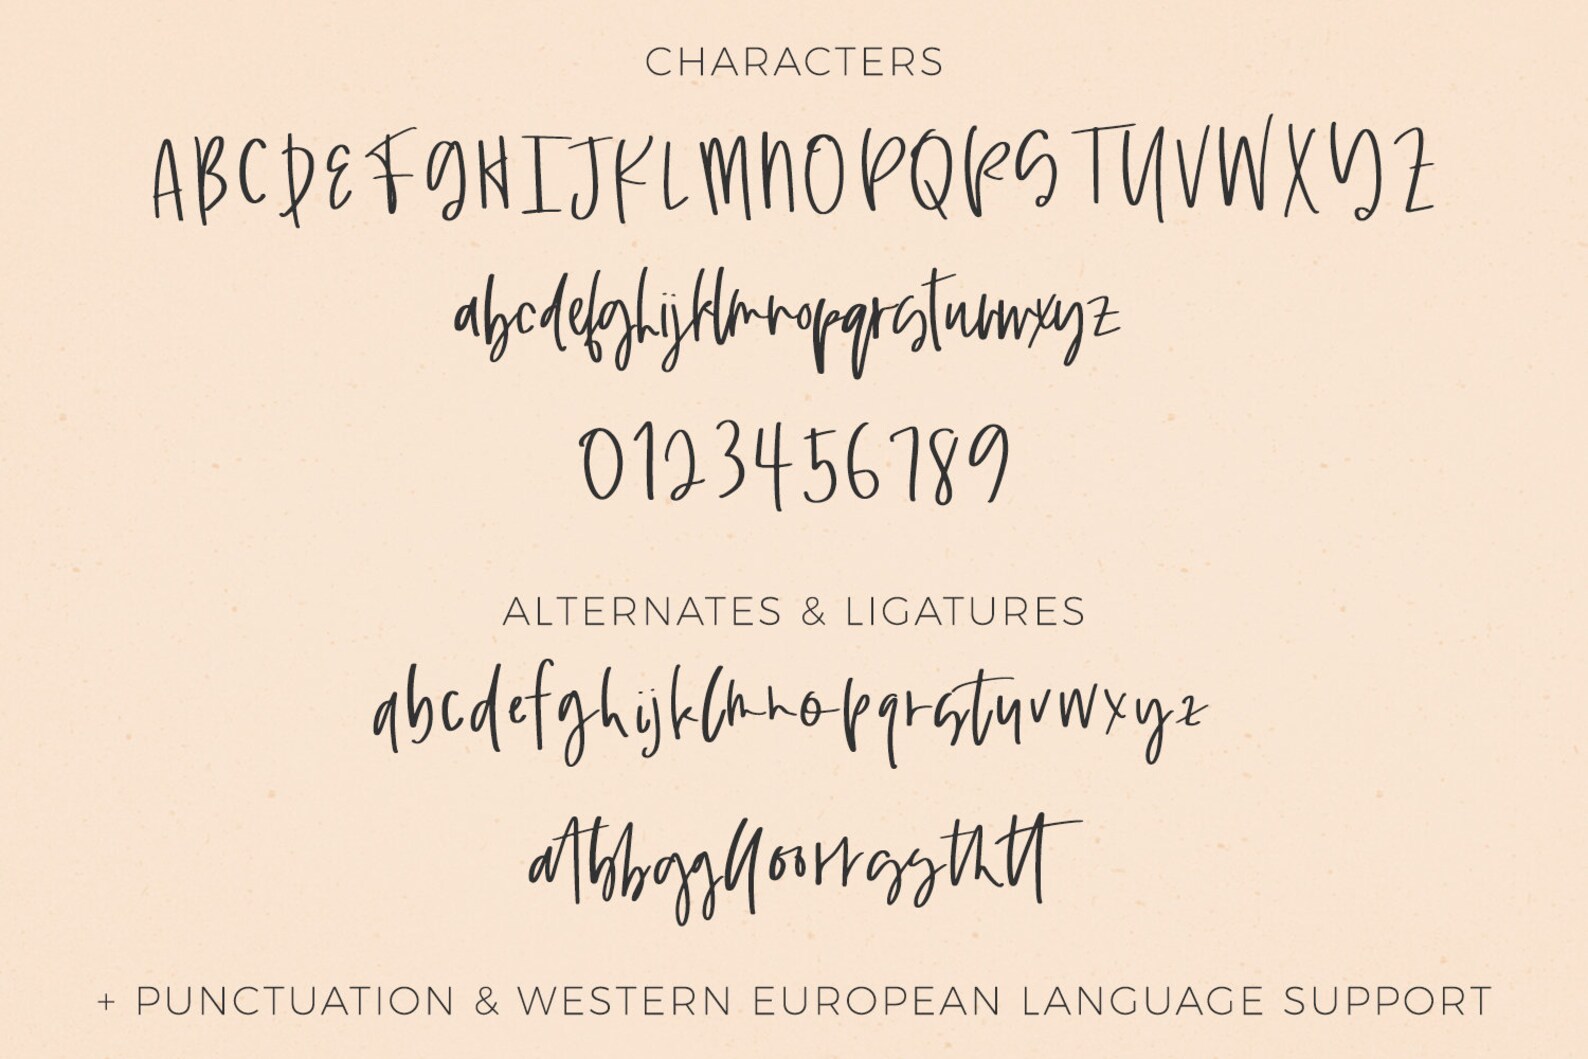 CHARACTERS
ABCDEFGHIJKLMNOPQRSTUVWXYZ
abcdefghijklmnopqrstuvwxyz
0123456789
ALTERNATES & LIGATURES
abcdefghijklmnopqrstuvwxyz
atbbgglloorrssthtt
+ PUNCTUATION & WESTERN EUROPEAN LANGUAGE SUPPORT